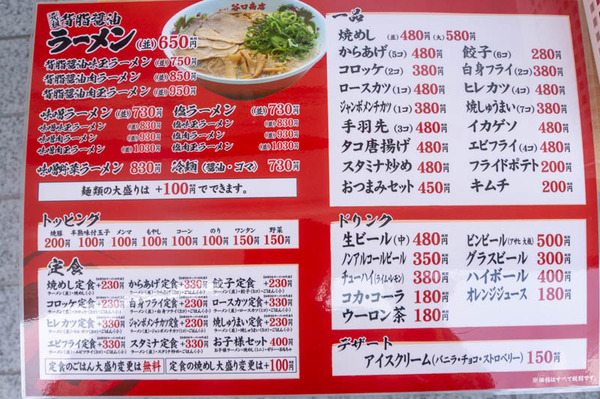 背脂醤油
ラーメン(並)650円
背脂醤油味玉ラーメン(並)750円
背脂醤油肉ラーメン(並)850円
背脂醤油肉玉ラーメン(並)950円
味噌ラーメン(並)730円 塩ラーメン(並)730円
味噌味玉ラーメン(並)830円 塩味玉ラーメン(並)830円
味噌肉ラーメン(並)930円 塩肉ラーメン(並)930円
味噌肉玉ラーメン(並)1030円 塩肉玉ラーメン(並)1030円
味噌野菜ラーメン 830円 冷麺(醤油・ゴマ) 730円
麺類の大盛りは +100円でできます。
トッピング
焼豚 半熟味付玉子 メンマ もやし コーン のり ワンタン 野菜
200円 100円 100円 100円 100円 100円 150円 150円
定食
焼めし定食+230円 からあげ定食+330円 餃子定食+230円
コロッケ定食+230円 白身フライ定食+230円 ロースカツ定食+330円
ヒレカツ定食+330円 ジャンボメンチカツ定食+230円 焼しゅうまい定食+230円
エビフライ定食+330円 スタミナ定食+330円 お子様セット400円
定食のごはん大盛り変更は無料 定食の焼めし大盛り変更は+100円
谷口商店
一品
焼めし (並)480円(大)580円
からあげ(5コ) 480円 餃子(6コ) 280円
コロッケ(2コ) 380円 白身フライ(2コ) 380円
ロースカツ(1コ) 480円 ヒレカツ(4コ) 480円
ジャンボメンチカツ(1コ) 380円 焼しゅうまい(7コ) 380円
手羽先(3コ) 480円 イカゲソ 480円
タコ唐揚げ 480円 エビフライ(4コ) 480円
スタミナ炒め 480円 フライドポテト 200円
おつまみセット 450円 キムチ 200円
ドリンク
生ビール(中) 480円 ビンビール(アサヒ 大瓶) 500円
ノンアルコールビール 350円 グラスビール 300円
チューハイ(ライム・レモン) 380円 ハイボール 400円
コカ・コーラ 180円 オレンジジュース 180円
ウーロン茶 180円
デザート
アイスクリーム(バニラ・チョコ・ストロベリー) 150円
※価格はすべて税別です。